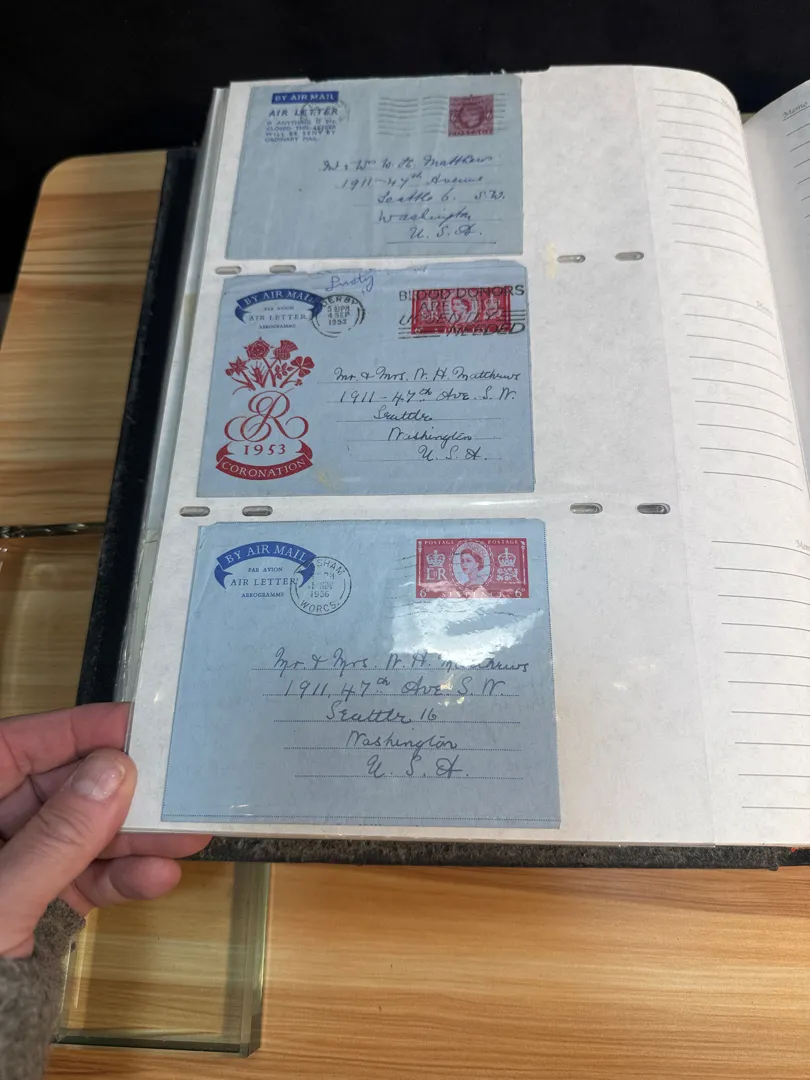 BY AIR MAIL
AIR LETTER
IF ANYTHING IS
ENCLOSED THIS LETTER
WILL BE SENT BY
ORDINARY MAIL.
Mr & Mrs W. H. Matthews
1911-47th Avenue
Seattle 6. S.W.
Washington
U. S. A.
BY AIR MAIL
PAR AVION
AIR LETTER
AEROGRAMME
DERBY
4 SEP
1953
BLOOD DONORS
ARE
NEEDED
ER
1953
CORONATION
Mr & Mrs. W. H. Matthews
1911-47th Ave. S. W.
Seattle
Washington
U. S. A.
BY AIR MAIL
PAR AVION
AIR LETTER
AEROGRAMME
SHAM
1956
WORCS.
POSTAGE POSTAGE
E R
6 SIXPENCE 6
Mr. & Mrs. W. H. Matthews
1911, 47th Ave S. W.
Seattle 16
Washington
U. S. A.
Memo